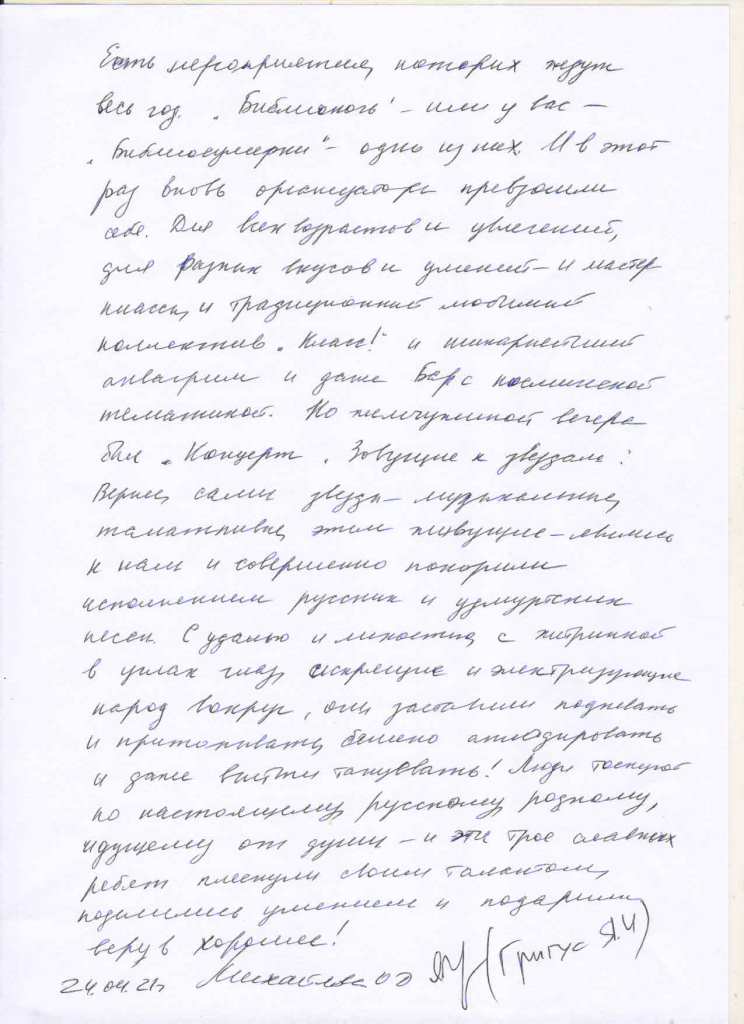 Есть мероприятия, которых ждут
весь год. „Библионочь" – или у вас –
„Библиосумерки" – одно из них. И в этот
раз вновь организаторы превзошли
себя. Для всех возрастов и увлечений,
для разных вкусов и умений – и мастер
классы, и традиционный любимый
коллектив „Класс!" и шикарнейший
аквагрим и даже Бар с космической
тематикой. Но жемчужиной вечера
был „Концерт „Зовущие к звездам".
Вернее, сами звезды – музыкальные,
талантливые, этим живущие – явились
к нам и совершенно покорили
исполнением русских и удмуртских
песен. С удалью и лихостью, с хитринкой
в углах глаз, искрящие и электризующие
народ вокруг, они заставили подпевать
и притопывать, бешено аплодировать
и даже выйти танцевать! Люди тоскуют
по настоящему, русскому, родному,
идущему от души – и эти трое славных
ребят плеснули своим талантом,
поделились умением и подарили
веру в хорошее!
24.04.21г Михайлова О.Э (Григус Я.И)